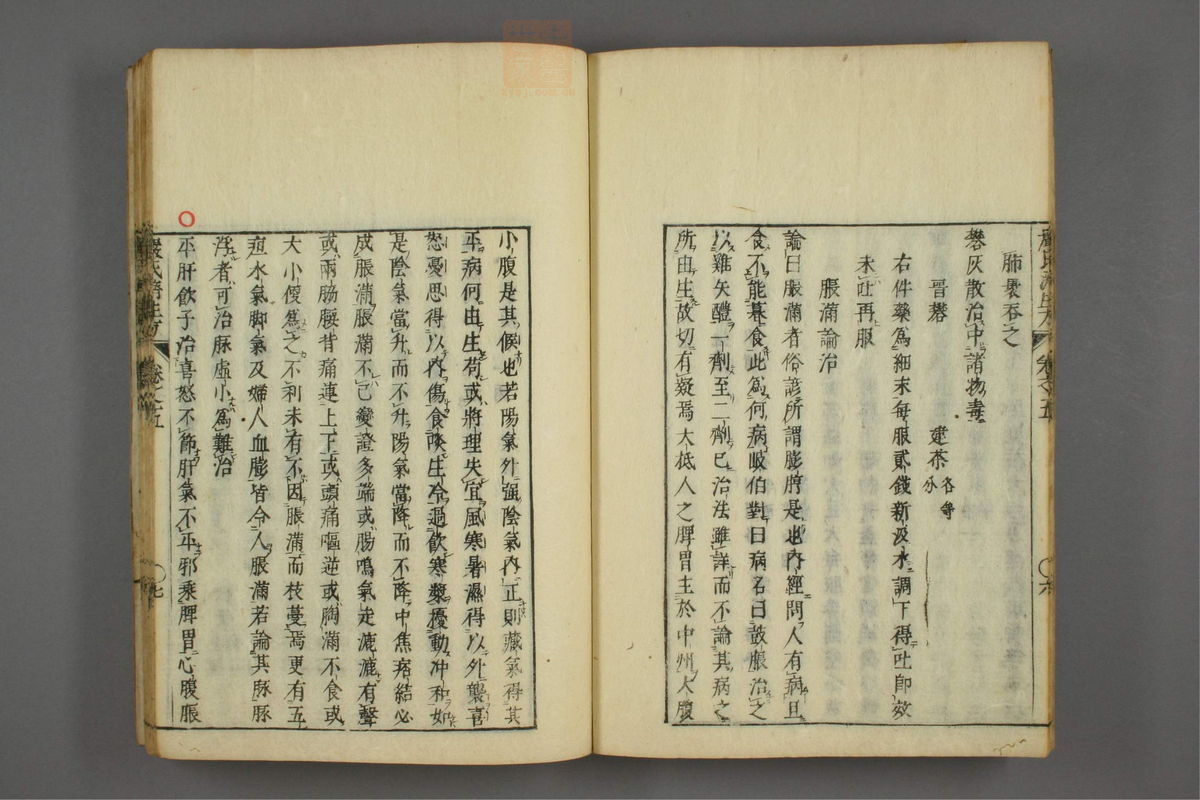 肺畏吞之
礬灰散治中諸物毒
晉礬　建茶各等分
右件藥爲細末每服貳錢新汲水調下得吐即效
未吐再服
脹滿論治
論曰脹滿者俗諺所謂膨脝是也內經問人有病旦
食不能暮食此爲何病岐伯對曰病名曰鼓脹治之
以雞矢醴一劑至二劑已治法雖詳而不論其病之
所由生故切有疑焉大抵人之脾胃主於中州大腹
嚴氏濟生方　卷之五　六
小腹是其候也若陽氣外強陰氣內正則藏氣得其
平病何由生苟或將理失宜風寒暑濕得以外襲喜
怒憂思得以內傷食啖生冷過飲寒漿擾動冲和如
是陰氣當升而不升陽氣當降而不降中焦痞結必
成脹滿脹滿不已變證多端或腸鳴氣走漉漉有聲
或兩脇腰背痛連上下或頭痛嘔逆或胸滿不食或
大小便爲之不利未有不因脹滿而枝蔓焉更有五
疸水氣脚氣及婦人血膨皆令人脹滿若論其脉脉
浮者可治脉虛小爲難治
平肝飲子治喜怒不節肝氣不平邪乘脾胃心腹脹
嚴氏濟生方　卷之五　七